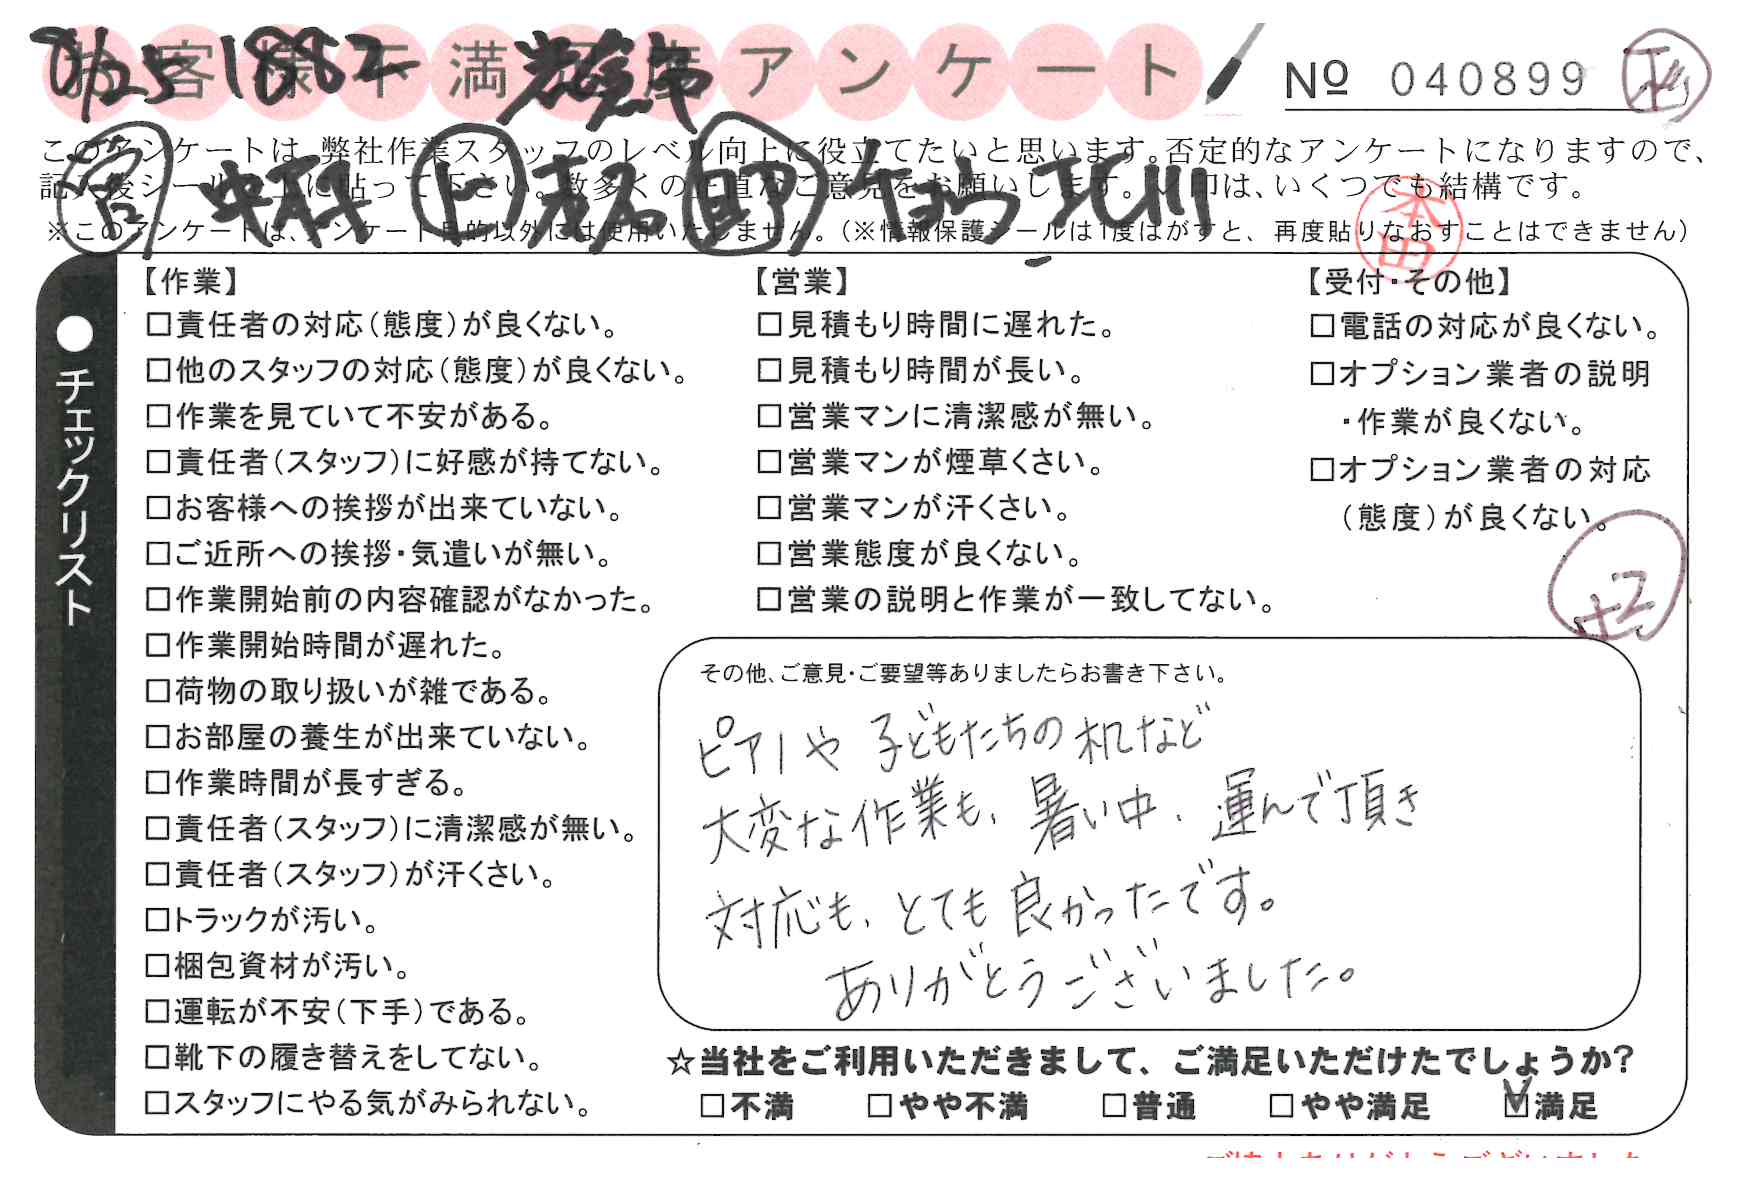 お客様不満足度アンケート
8/25 1882
Nº 040899
このアンケートは、弊社作業スタッフのレベル向上に役立てたいと思います。否定的なアンケートになりますので、
記入後シールを上に貼って下さい。数多くの正直なご意見をお願いします。レ印は、いくつでも結構です。
※このアンケートは、アンケート目的以外には使用いたしません。（※情報保護シールは1度はがすと、再度貼りなおすことはできません）
北川
本田
●チェックリスト
【作業】
□責任者の対応（態度）が良くない。
□他のスタッフの対応（態度）が良くない。
□作業を見ていて不安がある。
□責任者（スタッフ）に好感が持てない。
□お客様への挨拶が出来ていない。
□ご近所への挨拶・気遣いが無い。
□作業開始前の内容確認がなかった。
□作業開始時間が遅れた。
□荷物の取り扱いが雑である。
□お部屋の養生が出来ていない。
□作業時間が長すぎる。
□責任者（スタッフ）に清潔感が無い。
□責任者（スタッフ）が汗くさい。
□トラックが汚い。
□梱包資材が汚い。
□運転が不安（下手）である。
□靴下の履き替えをしてない。
□スタッフにやる気がみられない。
【営業】
□見積もり時間に遅れた。
□見積もり時間が長い。
□営業マンに清潔感が無い。
□営業マンが煙草くさい。
□営業マンが汗くさい。
□営業態度が良くない。
□営業の説明と作業が一致してない。
【受付・その他】
□電話の対応が良くない。
□オプション業者の説明
・作業が良くない。
□オプション業者の対応
（態度）が良くない。
その他、ご意見・ご要望等ありましたらお書き下さい。
ピアノや子どもたちの机など
大変な作業も、暑い中、運んで頂き
対応も、とても良かったです。
ありがとうございました。
☆当社をご利用いただきまして、ご満足いただけたでしょうか？
□不満 □やや不満 □普通 □やや満足 ☑満足